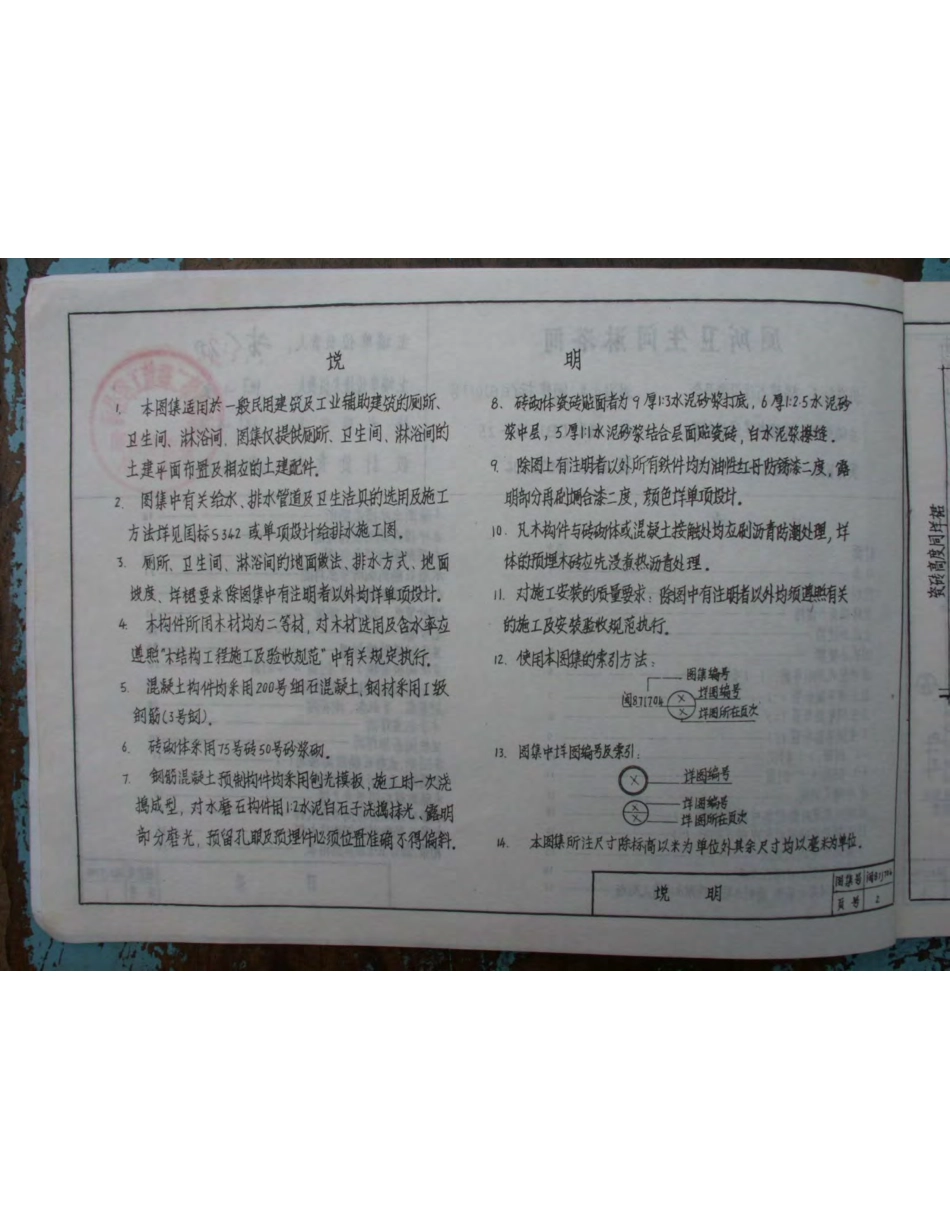 说 明
1. 本图集适用于一般民用建筑及工业辅助建筑的厕所、
卫生间、淋浴间、图集仅提供厕所、卫生间、淋浴间的
土建平面布置及相应的土建配件.
2. 图集中有关给水、排水管道及卫生洁具的选用及施工
方法详见国标S342 或单项设计给排水施工图.
3. 厕所、卫生间、淋浴间的地面做法、排水方式、地面
坡度、详根要求除图集中有注明者以外均详单项设计.
4. 木构件所用木材均为二等材, 对木材选用及含水率应
遵照"木结构工程施工及验收规范"中有关规定执行.
5. 混凝土构件均采用200号细石混凝土, 钢材采用I级
钢筋(3号钢).
6. 砖砌体采用75号砖50号砂浆砌.
7. 钢筋混凝土预制构件均采用刨光模板, 施工时一次浇
捣成型, 对水磨石构件用1:2水泥白石子浇捣抹光、露明
部分磨光, 预留孔眼及预埋件必须位置准确不得偏斜.
8. 砖砌体瓷砖贴面者为9厚1:3水泥砂浆打底, 6厚1:2.5水泥砂
浆中层, 5厚1:1水泥砂浆结合层面贴瓷砖, 白水泥浆擦缝.
9. 除图上有注明者以外所有铁件均为油性红丹防锈漆二度, 露
明部分再刷调合漆二度, 颜色详单项设计.
10. 凡木构件与砖砌体或混凝土接触处均应刷沥青防潮处理, 详
体的预埋木砖应先浸煮热沥青处理.
11. 对施工安装的质量要求: 除图中有注明者以外均须遵照有关
的施工及安装验收规范执行.
12. 使用本图集的索引方法:
图集编号
闽871704 × 详图编号
× 详图所在页次
13. 图集中详图编号及索引:
× 详图编号
× 详图编号
× 详图所在页次
14. 本图集所注尺寸除标高以米为单位外其余尺寸均以毫米为单位.
说 明
图集号 闽871704
页号 2
瓷砖高度间详据